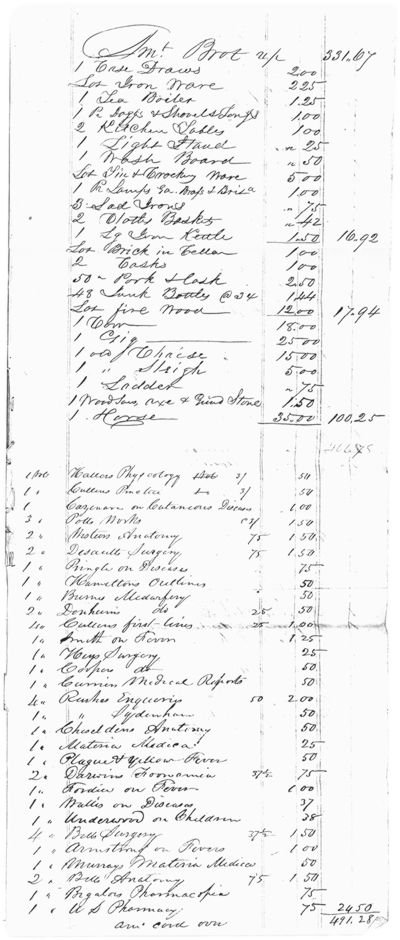 Amt. Brot up 331.67
1 Case Draws 2.00
Lot Iron Ware 2 25
1 Tea Boiler 1.25
1 Pr Doggs & Shovel & Tongs 1.00
2 Kitchen Tables 1 00
1 Light Stand " 25
1 Wash Board " 50
Lot Tin & Crockery Ware 5 00
1 Pr Lamps 1 00
3 Sad Irons " 75
2 Cloths Baskts " 42
1 Lg Iron Kettle 1.50 16.92
Lot Brick in Cellar 1 00
2 Casks 1 00
50 " Pork & Cask 2.50
48 Junk Bottles @ 3 ¢ 1 44
Lot fire Wood 12.00 17.94
1 Cow 18.00
1 Gig 25 00
1 old Chaise 15.00
1 " Sleigh 5.00
1 Ladder " 75
1 Wood Saw, axe & Grind Stone 1.50
1 Horse 35.00 100.25
1 Vol Hallers Physcology 3/ 50
1 " Cullens Practice 3/ 50
1 Cazenave on Cutaneous Diseases 1 00
3 " Potts Works 1 50
2 " Wisters Anatomy 75 1.50
2 " Desaults Surgery 75 1.50
1 " Pringle on Diseases 75
1 " Hamiltons Outlines 50
1 " Burns Medwifery 50
2 " Denhams do 25 50
4 " Cullens first-lines 25 1.00
1 " Smith on Fever 1.25
1 " Heys Surgery 25
1 " Coopers do 50
1 " Curries Medical Reports 50
4 " Rushes Enquirys 50 2.00
1 " " Sydenham 50
1 " Cheseldens Anatomy 50
1 " Materia Medica 25
1 " Plague & Yellow Fever 50
2 " Darwins Zoonamia 37½ 75
1 " Fordice on Fever 1 00
1 " Wallis on Diseases 37
1 " Underwood on Children 38
4 " Bells Surgery 37½ 1.50
1 " Armstrong on Fevers 1 00
1 " Murrays Materia Medica 50
2 " Bells Anatomy 75 1.50
1 " Bigelows Pharmacopia 75
1 " U S Pharmacy 75 24 50
Am. card over 491.28